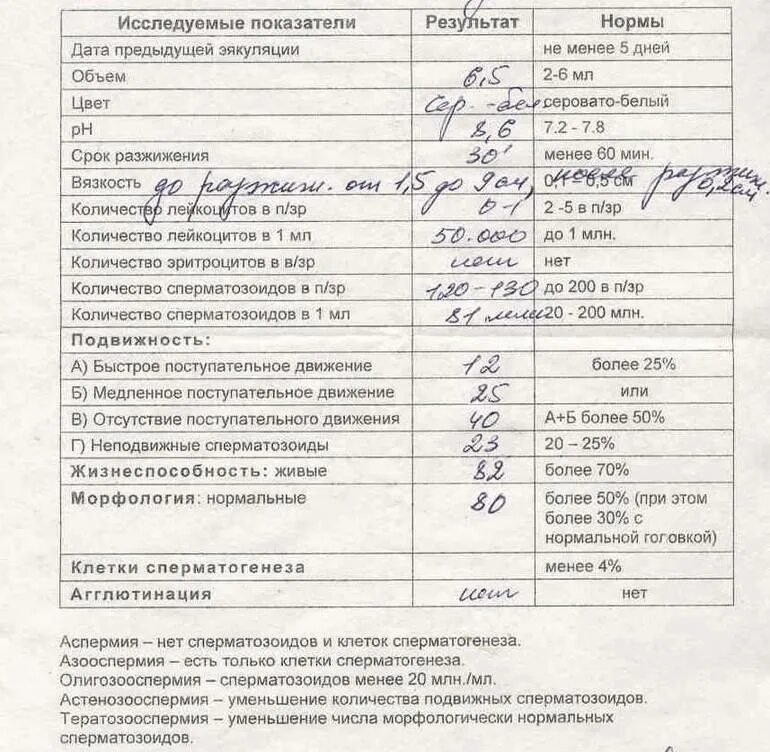 Исследуемые показатели Результат Нормы
Дата предыдущей эякуляции не менее 5 дней
Объем 6,5 2-6 мл
Цвет сер. -бел. серовато-белый
pH 8,6 7.2 - 7.8
Срок разжижения 30' менее 60 мин.
Вязкость до разжиж. от 1,5 до 9 см, после разжиж. 0,1 – 0,5 см
0,2 см
Количество лейкоцитов в п/зр 0-1 2 -5 в п/зр
Количество лейкоцитов в 1 мл 50.000 до 1 млн.
Количество эритроцитов в в/зр нет нет
Количество сперматозоидов в п/зр 120-130 до 200 в п/зр
Количество сперматозоидов в 1 мл 81 млн 20 - 200 млн.
Подвижность:
А) Быстрое поступательное движение 12 более 25%
Б) Медленное поступательное движение 25 или
В) Отсутствие поступательного движения 40 А+Б более 50%
Г) Неподвижные сперматозоиды 23 20 – 25%
Жизнеспособность: живые 82 более 70%
Морфология: нормальные 80 более 50% (при этом
более 30% с
нормальной головкой)
Клетки сперматогенеза менее 4%
Агглютинация нет нет
Аспермия – нет сперматозоидов и клеток сперматогенеза.
Азооспермия – есть только клетки сперматогенеза.
Олигозооспермия – сперматозоидов менее 20 млн./мл.
Астенозооспермия – уменьшение количества подвижных сперматозоидов.
Тератозооспермия – уменьшение числа морфологически нормальных
сперматозоидов.